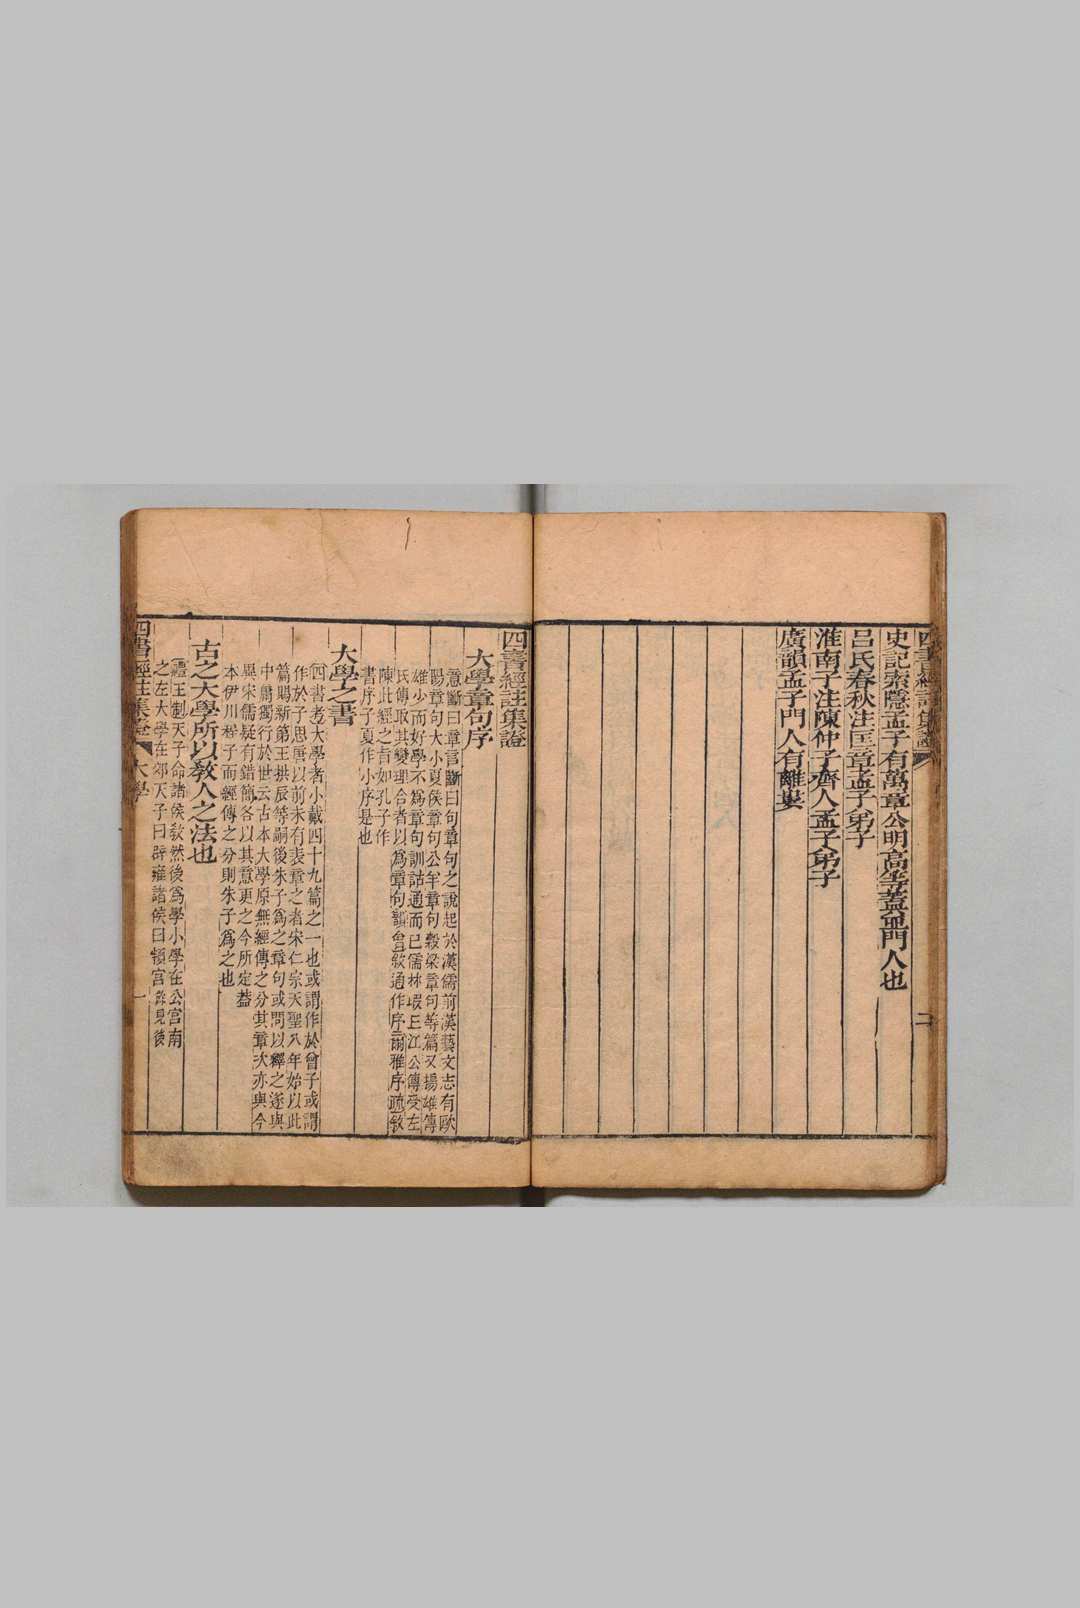 史記索隱孟子有萬章公明高等蓋並門人也
呂氏春秋注匡章孟子弟子
淮南子注陳仲子齊人孟子弟子
廣韻孟子門人有離婁
二
四書經註集證
大學章句序
意斷曰章言斷曰句章句之說起於漢儒前漢藝文志有歐
陽章句大小夏侯章句公羊章句穀梁章句等篇又揚雄傳
雄少而好學不為章句訓詁通而已儒林瑕丘江公傳受左
氏傳取其變理合者以為章句韻會敘通作序爾雅序疏敘
陳此經之旨如孔子作
書序子夏作小序是也
大學之書
四書考大學者小戴四十九篇之一也或謂作於曾子或謂
作於子思唐以前未有表章之者宋仁宗天聖八年始以此
篇賜新第王拱辰等嗣後朱子為之章句或問以釋之遂與
中庸獨行於世云古本大學原無經傳之分其章次亦與今
異宋儒疑有錯簡各以其意更之今所定蓋
本伊川程子而經傳之分則朱子為之也
古之大學所以教人之法也
禮王制天子命諸侯教然後為學小學在公宮南
之左大學在郊天子曰辟雍諸侯曰頖宮餘見後
四書經註集證 大學 一